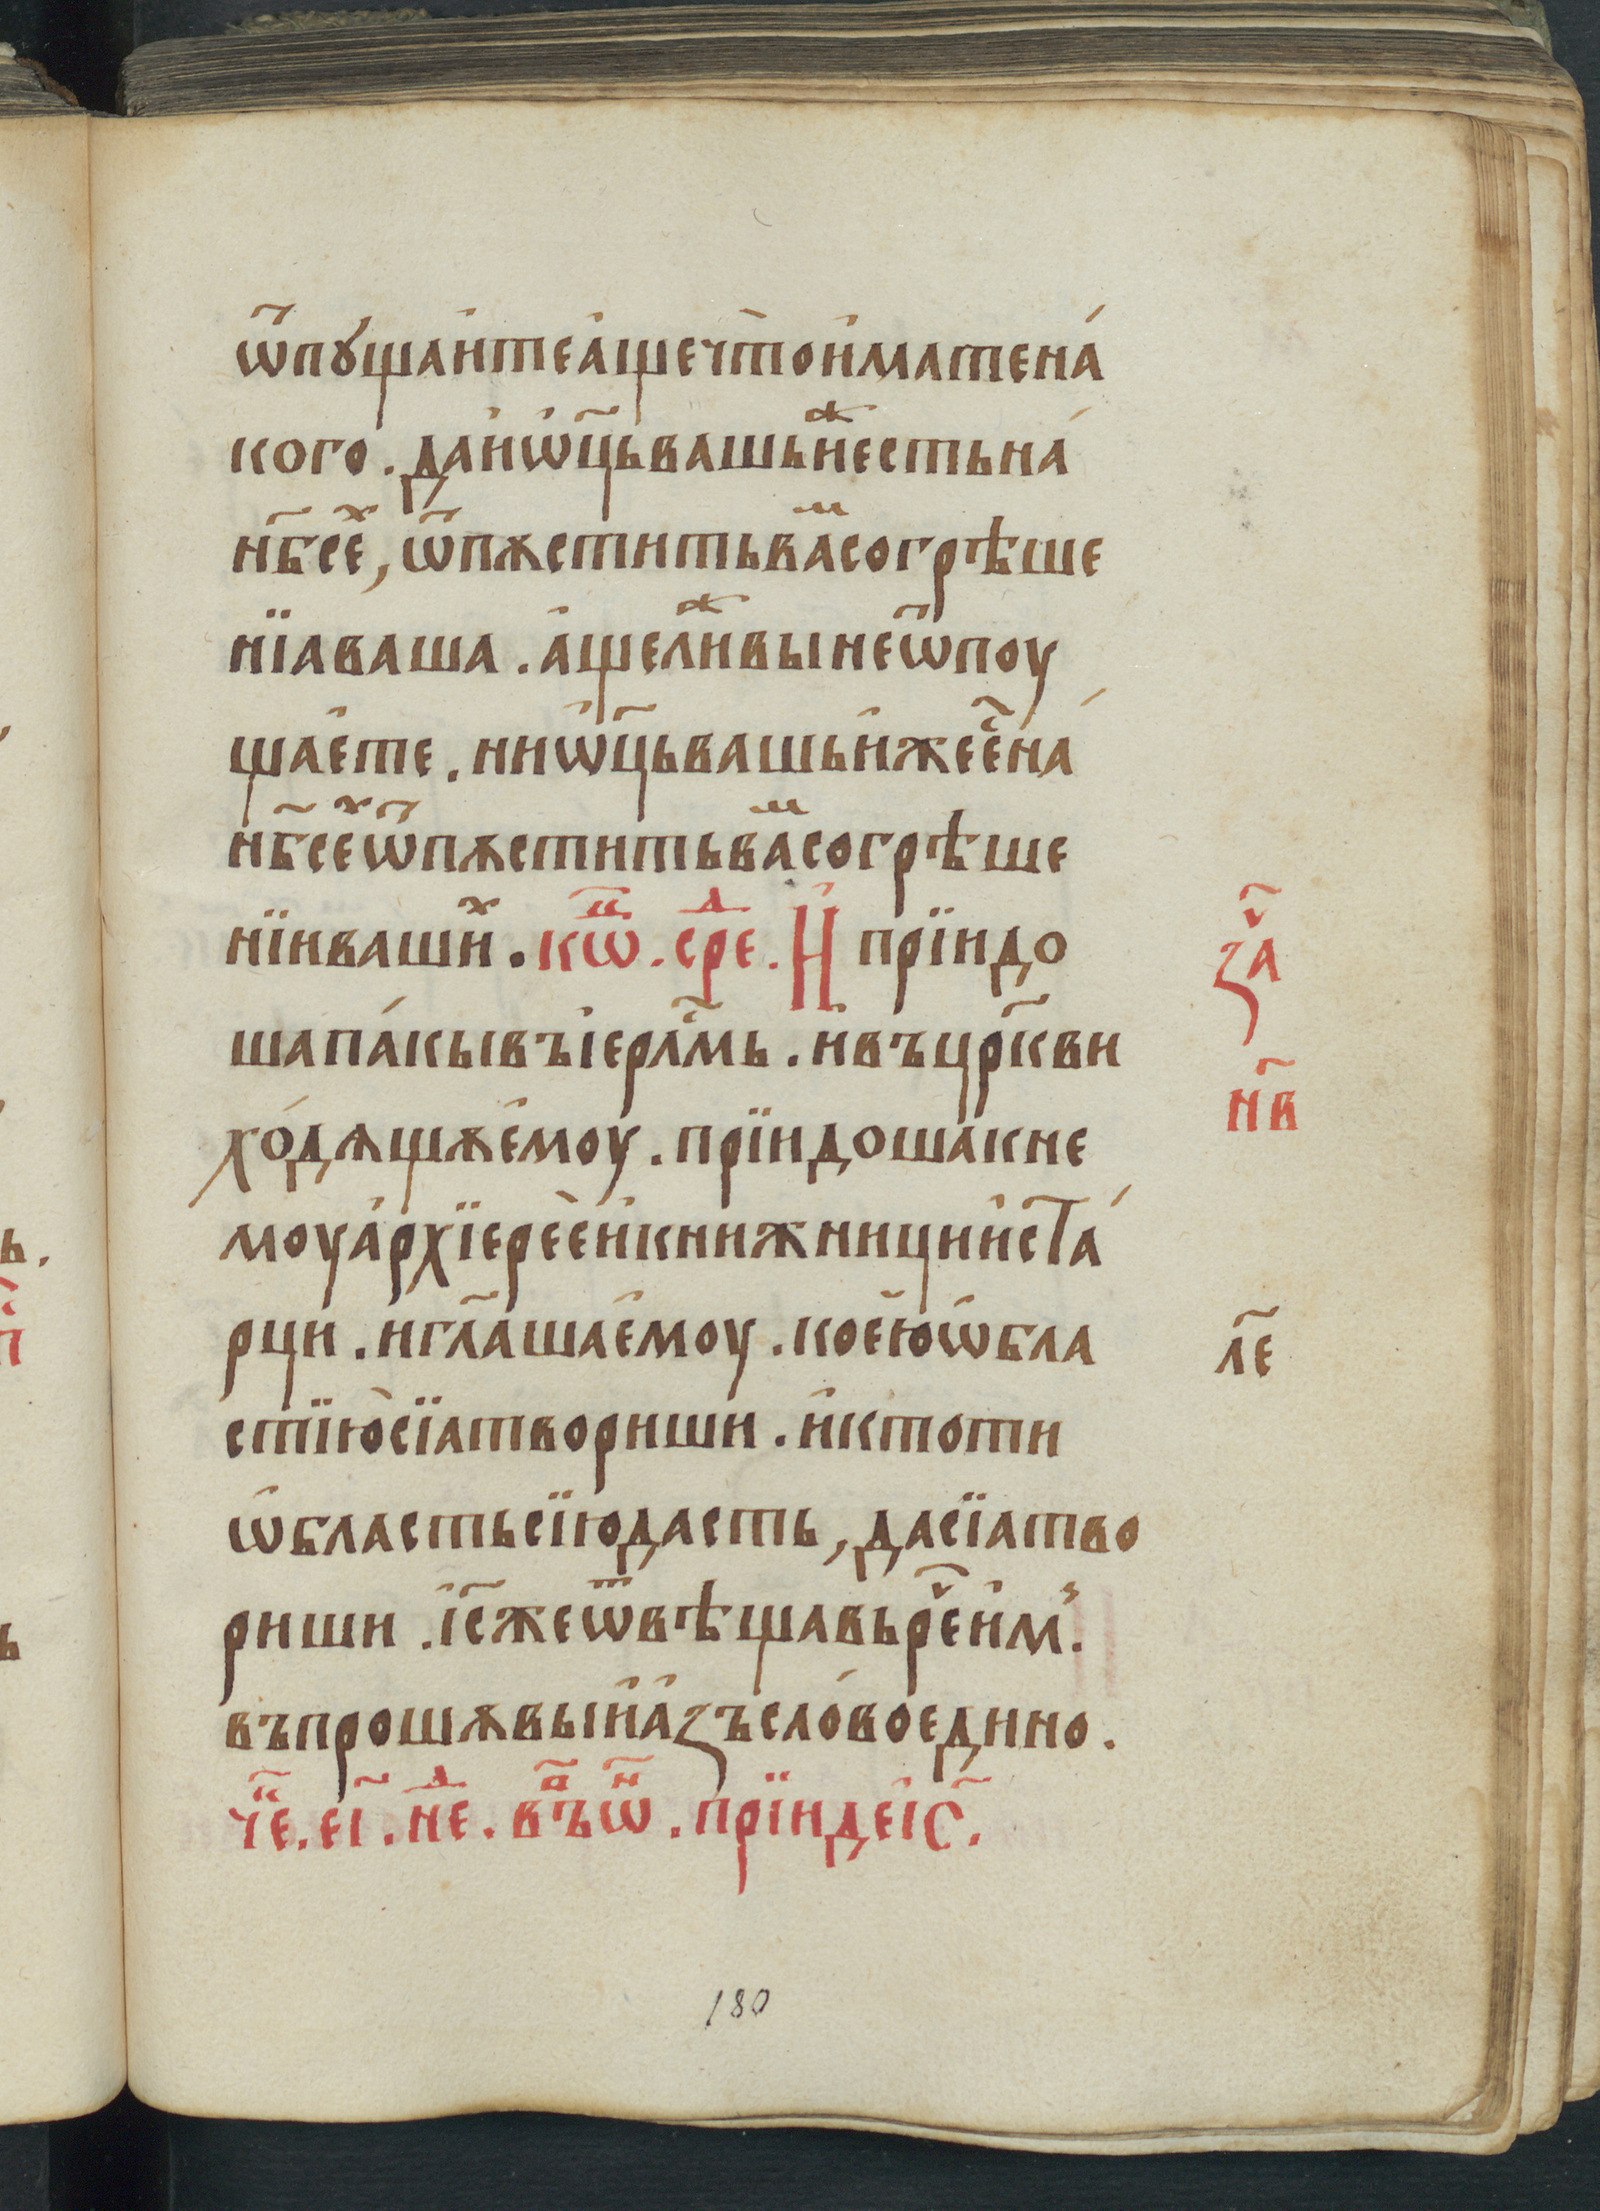 ѿпꙋщаитеа҆щечто̀и҆матена́
кого . даи҆ѡ҆ц҃ьвашьи҆ⷤестьна́
нб҃сеⷯ҇ , ѿпѫститьваⷨ҇согрѣше
нїаваша . а҆щелиⷤвынеѿпоу
щае҆те . ниѡ҆ц҃ьвашьи҆жее҆ⷭ҇на́
нб҃сеⷯ҇ѿпѫститьваⷨ҇согрѣше
нїивашиⷯ҇ . кѡⷩ҇ . среⷣ . И҆ прїидо
шапа́кывъіе҆рлⷭ҇мь . и҆въцр҃кви
хо́дѧщѫе҆моу . прїидошак̾не
моуа҆рхїереѐи҆книжници и҆ста́
рци . и҆гл҃ашае҆моу . кое҆ю҆ѡ҆бла
стїю̀сїатвориши . и҆ктоти
ѡ҆бластьсїюдасть , дасїатво
риши . іс҃жеѿвѣщавьреⷱ҇и҆м .
въпрошѫвыи҆а҆ꙁъсло́воедино .
чеⷮ . е҃і . неⷣ . въⷪ҇ѡⷩ҇ . прїидеі҆с҃ .
заⷱ҇
н҃в
л҃е
180